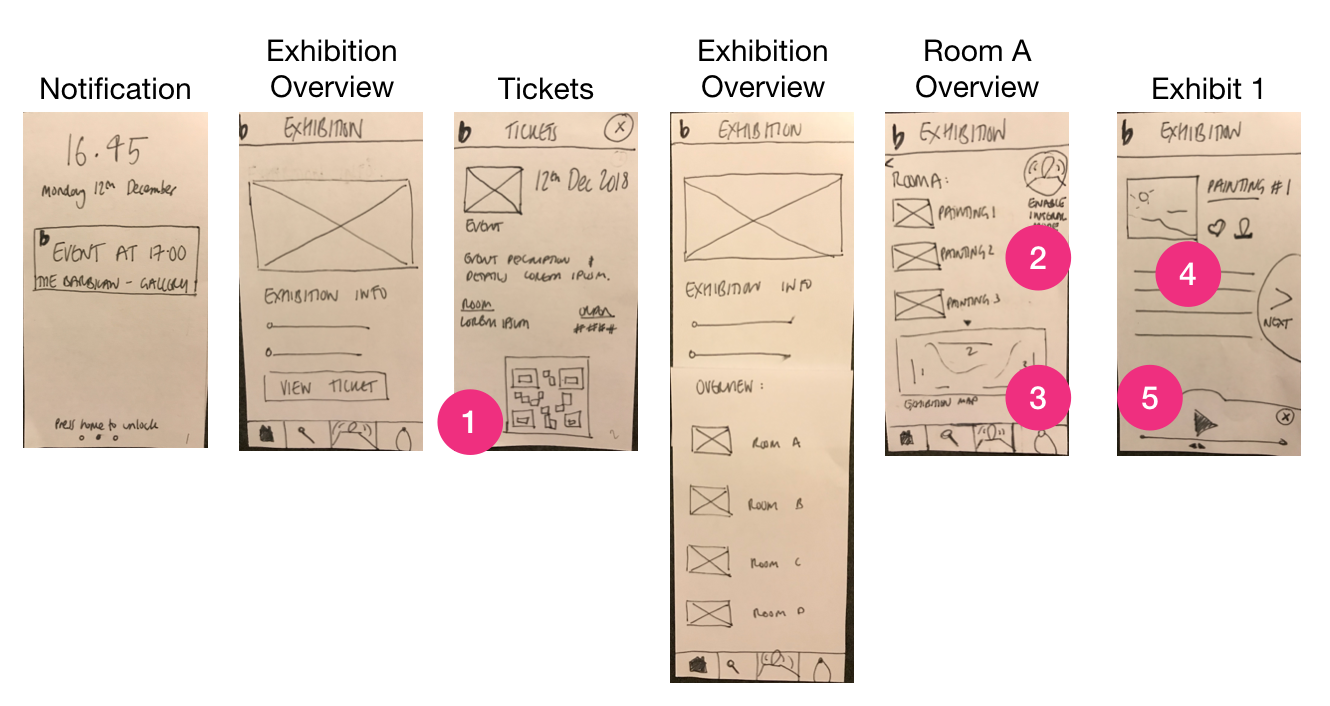 Notification
16.45
Monday 12th December
b
EVENT AT 17:00
THE BARBICAN - GALLERY
Press home to unlock
1
Exhibition
Overview
b EXHIBITION
EXHIBITION INFO
VIEW TICKET
Tickets
b TICKETS X
12th Dec 2018
EVENT
EVENT DESCRIPTION &
DETAILS LOREM IPSUM.
ROOM
LOREM IPSUM
####
1
2
Exhibition
Overview
b EXHIBITION
EXHIBITION INFO
OVERVIEW :
ROOM A
ROOM B
ROOM C
ROOM D
Room A
Overview
b EXHIBITION
<
ROOM A:
ENABLE
PAINTING 1
PAINTING 2
2
PAINTING 3
2
1
EXHIBITION MAP
3
Exhibit 1
b EXHIBITION
PAINTING #1
4
>
NEXT
5
X